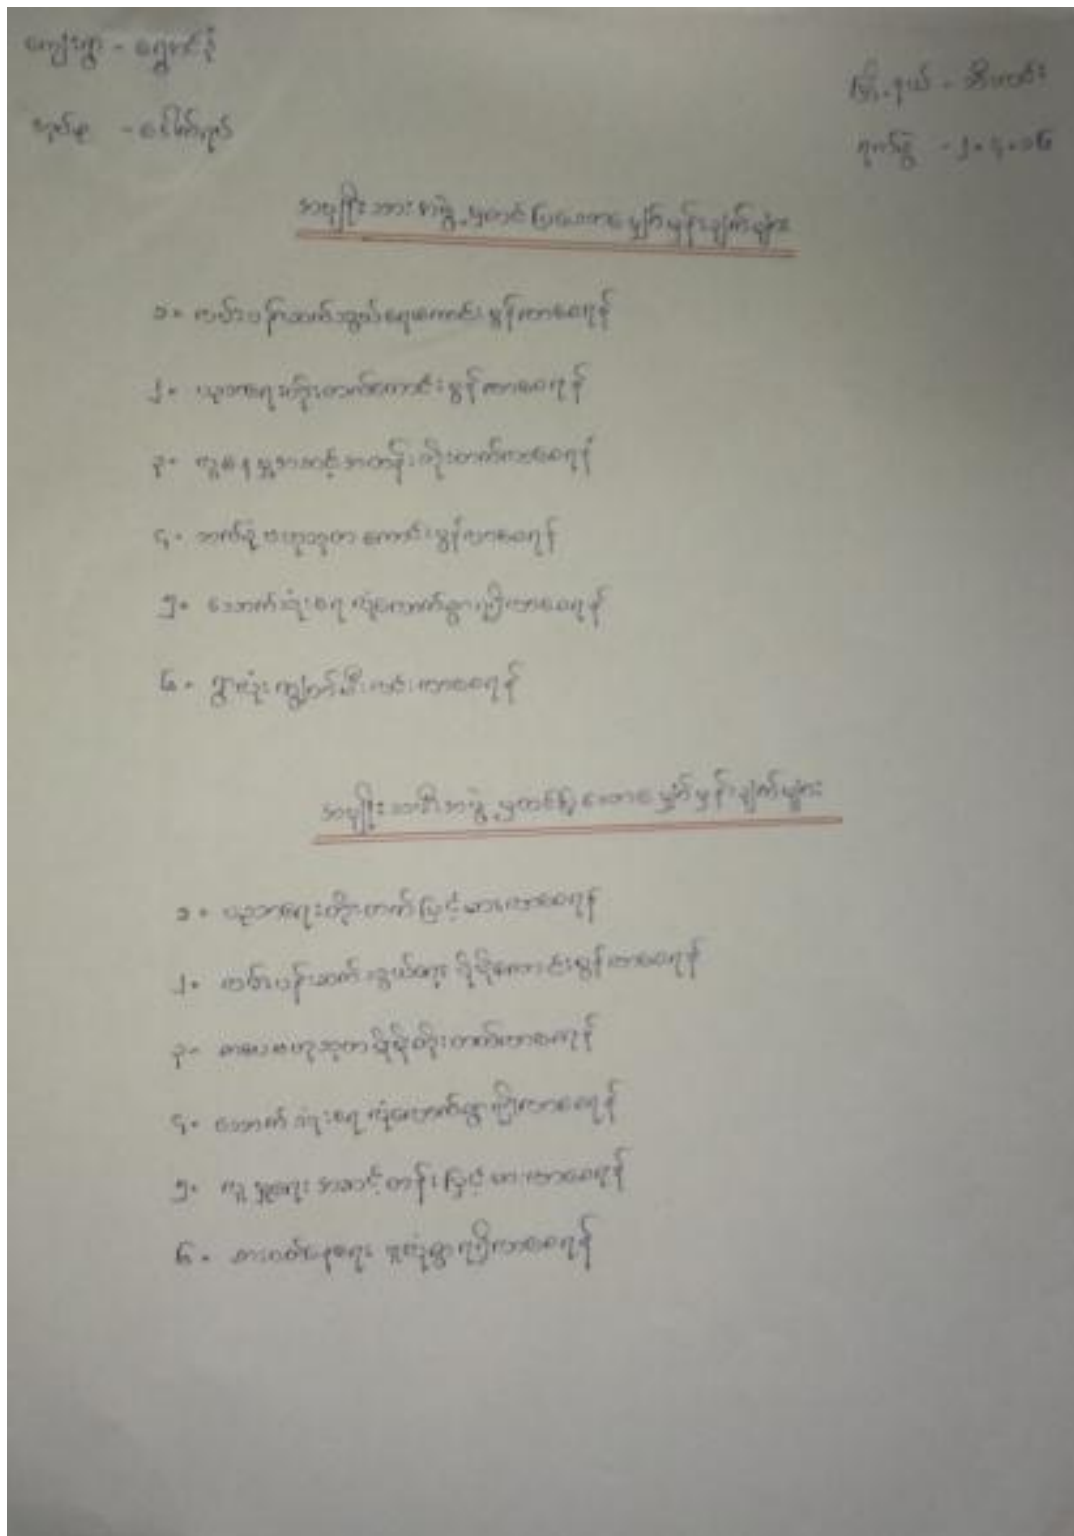 ကျေးရွာ - ရွှေတင်ဒိုံ
မြို့နယ် - အိမ်မဲ
အုပ်စု -
ရက်စွဲ - ၂.၄.၁၆
အမျိုးသားအဖွဲ့မှတင်ပြသောမျှော်မှန်းချက်များ
၁။ လမ်းပန်းဆက်သွယ်ရေးကောင်းမွန်လာစေရန်
၂။ ပညာရေးတိုးတက်ကောင်းမွန်လာစေရန်
၃။ လူနေမှုအဆင့်အတန်းတိုးတက်လာစေရန်
၄။ ဗဟုသုတ ကောင်းမွန်လာစေရန်
၅။ သောက်သုံးရေ လုံလောက်စွာရရှိလာစေရန်
၆။ ရွာလုံးကျွတ်မီးလင်းလာစေရန်
အမျိုးသမီးအဖွဲ့မှတင်ပြသောမျှော်မှန်းချက်များ
၁။ ပညာရေးတိုးတက်မြင့်မားလာစေရန်
၂။ လမ်းပန်းဆက်သွယ်ရေး ပိုမိုကောင်းမွန်လာစေရန်
၃။ စာပေဗဟုသုတပိုမိုတိုးတက်လာစေရန်
၄။ သောက်သုံးရေ လုံလောက်စွာရရှိလာစေရန်
၅။ လူမှုရေး အဆင့်တန်းမြင့်မားလာစေရန်
၆။ စားဝတ်နေရေး ဖူလုံစွာရရှိလာစေရန်